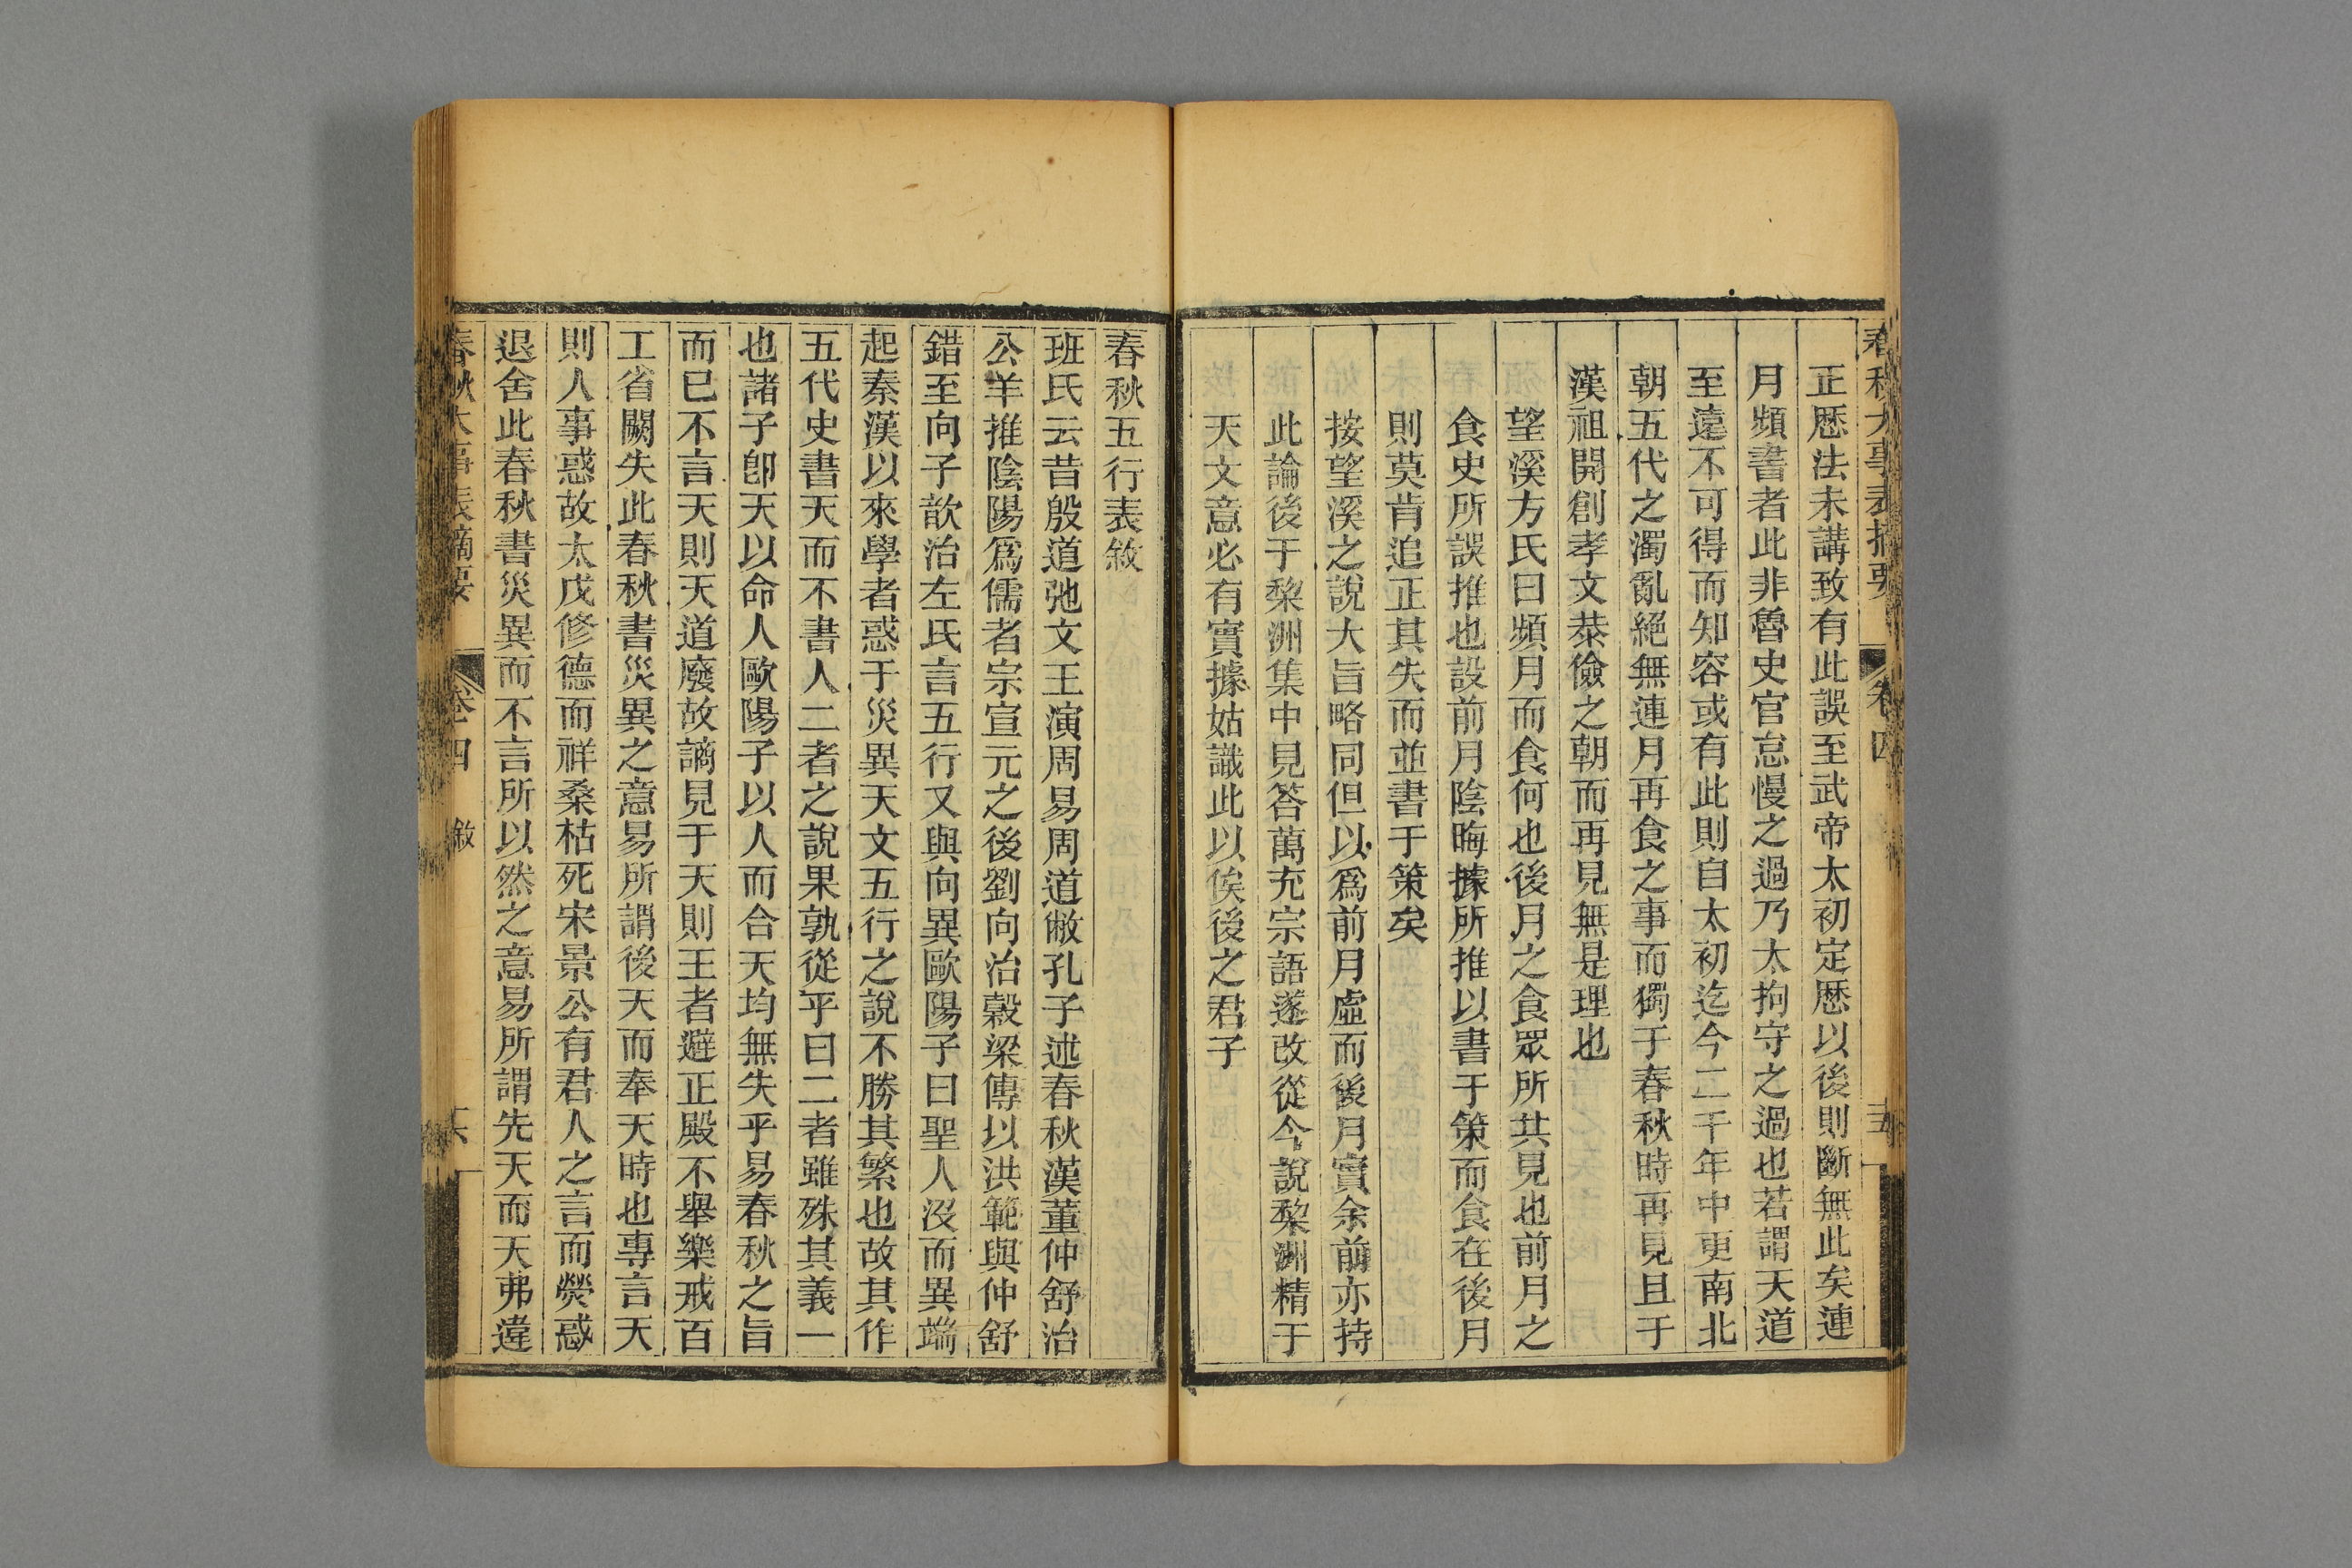 春秋大事表摘要 卷四 十五
正厯法未講致有此誤至武帝太初定厯以後則斷無此矣連
月頻書者此非魯史官怠慢之過乃太拘守之過也若謂天道
至遠不可得而知容或有此則自太初迄今二千年中更南北
朝五代之濁亂絕無連月再食之事而獨于春秋時再見且于
漢祖開創孝文恭儉之朝而再見無是理也
望溪方氏曰頻月而食何也後月之食眾所共見也前月之
食史所誤推也設前月陰晦據所推以書于策而食在後月
則莫肯追正其失而並書于策矣
按望溪之說大旨略同但以爲前月虛而後月實余前亦持
此論後于棃洲集中見答萬充宗語遂改從今說棃洲精于
天文意必有實據姑識此以俟後之君子
春秋五行表敘
班氏云昔殷道弛文王演周易周道敝孔子述春秋漢董仲舒治
公羊推陰陽爲儒者宗宣元之後劉向治穀梁傳以洪範與仲舒
錯至向子歆治左氏言五行又與向異歐陽子曰聖人沒而異端
起秦漢以來學者惑于災異天文五行之說不勝其繁也故其作
五代史書天而不書人二者之說果孰從乎曰二者雖殊其義一
也諸子卽天以命人歐陽子以人而合天均無失乎易春秋之旨
而已不言天則天道廢故謫見于天則王者避正殿不舉樂戒百
工省闕失此春秋書災異之意易所謂後天而奉天時也專言天
則人事惑故太戊修德而祥桑枯死宋景公有君人之言而熒惑
退舍此春秋書災異而不言所以然之意易所謂先天而天弗違
春秋大事表摘要 卷四 敘 十六